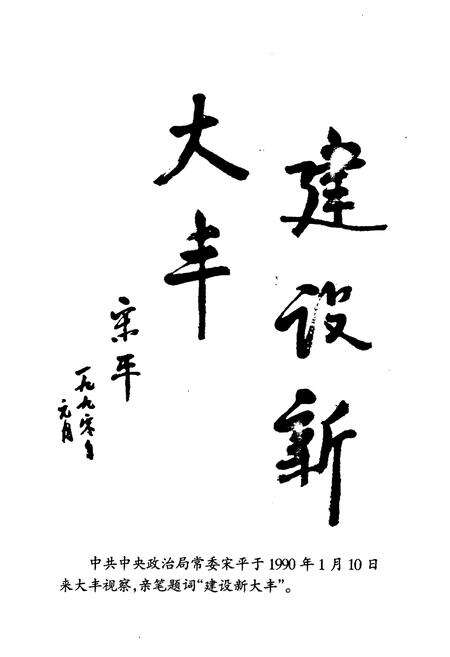 建设新
大丰
宋平
一九九零年
元月
中共中央政治局常委宋平于1990年1月10日
来大丰视察，亲笔题词“建设新大丰”。